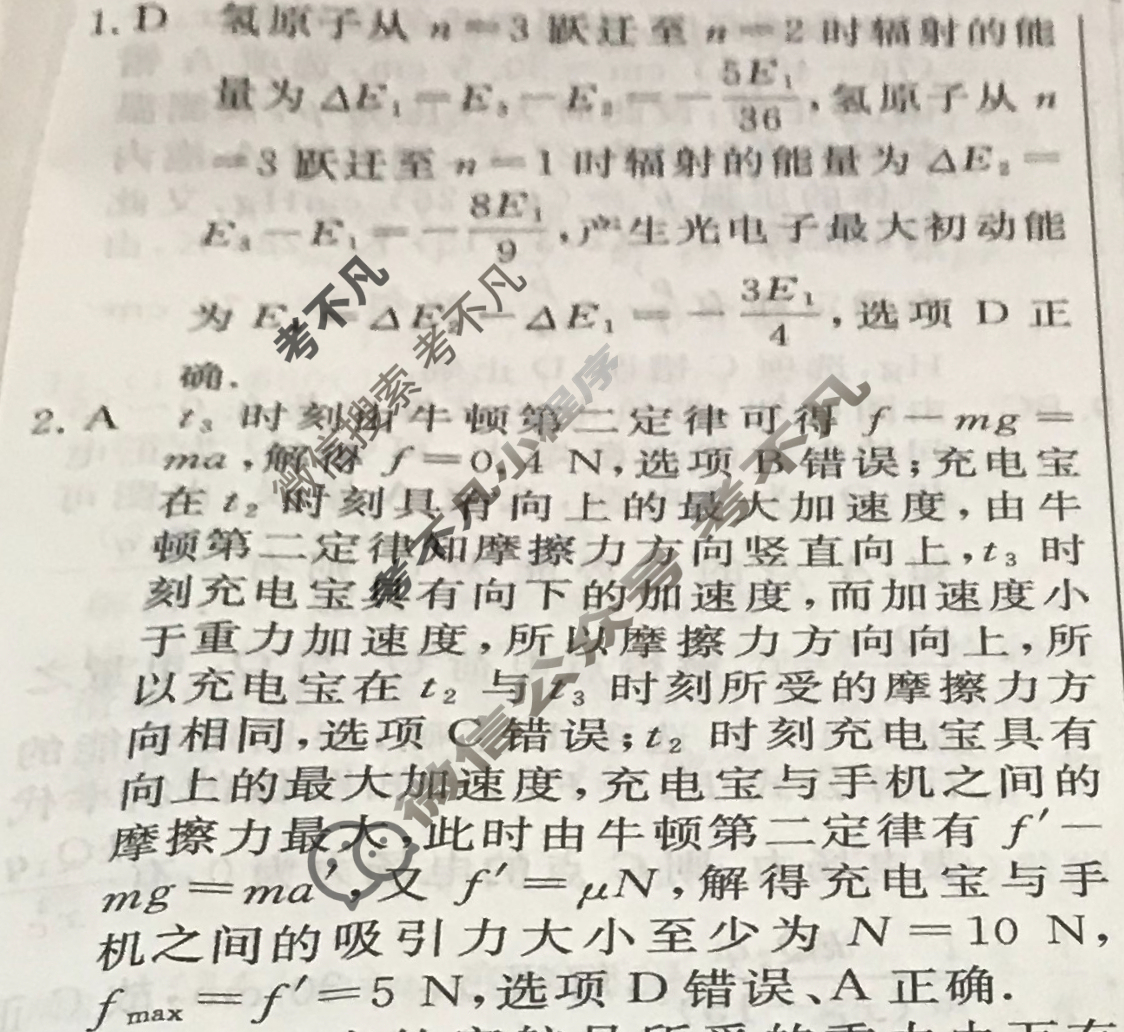 1. D 氢原子从 n=3 跃迁至 n=2 时辐射的能
量为 ΔE₁=E₃-E₂=-5E₁/36,氢原子从 n
=3 跃迁至 n=1 时辐射的能量为 ΔE₂=
E₃-E₁=-8E₁/9,产生光电子最大初动能
为 ΔE₂-ΔE₁=-3E₁/4,选项 D 正
确.
2. A t₃ 时刻由牛顿第二定律可得 f-mg=
ma,解得 f=0.4 N,选项 B 错误;充电宝
在 t₂ 时刻具有向上的最大加速度,由牛
顿第二定律知摩擦力方向竖直向上,t₃ 时
刻充电宝具有向下的加速度,而加速度小
于重力加速度,所以摩擦力方向向上,所
以充电宝在 t₂ 与 t₃ 时刻所受的摩擦力方
向相同,选项 C 错误;t₂ 时刻充电宝具有
向上的最大加速度,充电宝与手机之间的
摩擦力最大,此时由牛顿第二定律有 f′-
mg=ma′,又 f′=μN,解得充电宝与手
机之间的吸引力大小至少为 N=10 N,
f max=f′=5 N,选项 D 错误、A 正确.
考不凡
微信搜索 考不凡
考不凡小程序
微信公众号 考不凡